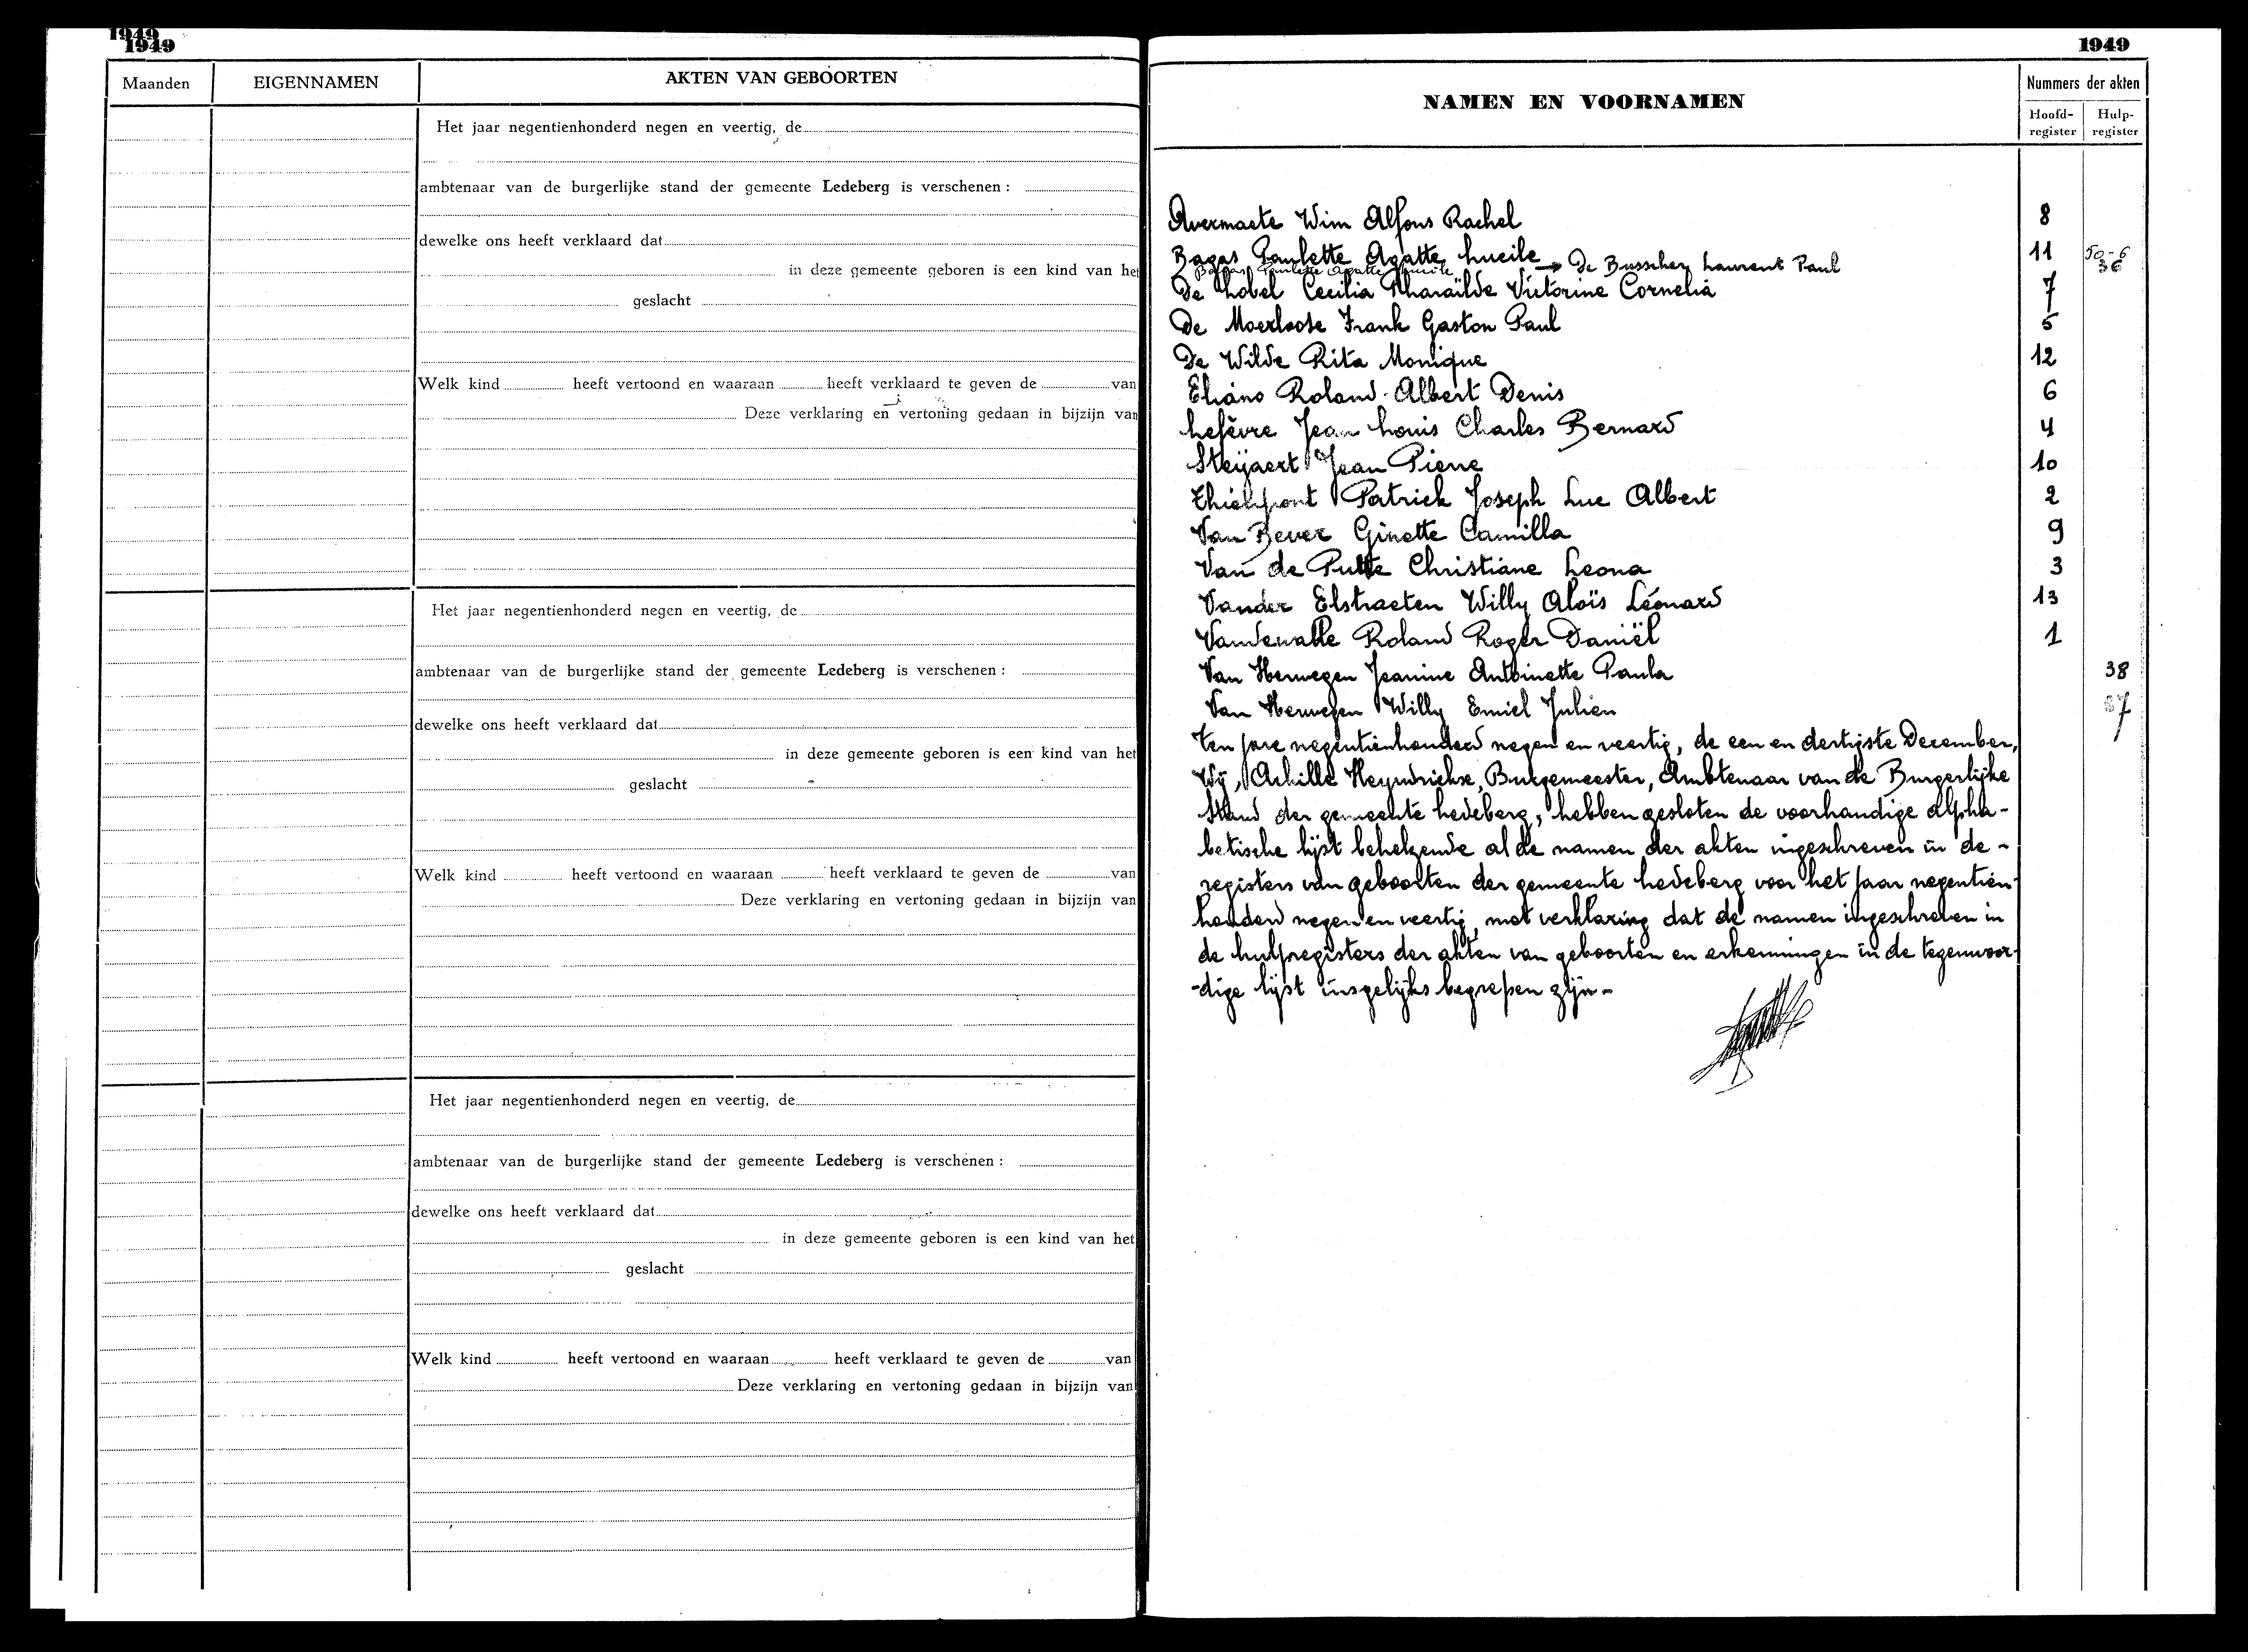 1949
1949
Maanden
EIGENNAMEN
AKTEN VAN GEBOORTEN
Het jaar negentienhonderd negen en veertig, de
ambtenaar van de burgerlijke stand der gemeente Ledeberg is verschenen :
dewelke ons heeft verklaard dat
in deze gemeente geboren is een kind van het
geslacht
Welk kind heeft vertoond en waaraan heeft verklaard te geven de van
Deze verklaring en vertoning gedaan in bijzijn van
Het jaar negentienhonderd negen en veertig, de
ambtenaar van de burgerlijke stand der gemeente Ledeberg is verschenen :
dewelke ons heeft verklaard dat
in deze gemeente geboren is een kind van het
geslacht
Welk kind heeft vertoond en waaraan heeft verklaard te geven de van
Deze verklaring en vertoning gedaan in bijzijn van
Het jaar negentienhonderd negen en veertig, de
ambtenaar van de burgerlijke stand der gemeente Ledeberg is verschenen :
dewelke ons heeft verklaard dat
in deze gemeente geboren is een kind van het
geslacht
Welk kind heeft vertoond en waaraan heeft verklaard te geven de van
Deze verklaring en vertoning gedaan in bijzijn van
1949
NAMEN EN VOORNAMEN
Nummers der akten
Hoofd-register
Hulp-register
Avermaete Wim Alfons Rachel 8
Bagas Paulette Agatte Lucile → De Busscher Laurent Paul 11 50-6
Bagas Paulette Agatte Lucile 36
De Lobel Cecilia Pharaïlde Victorine Cornelia 7
De Moerloose Frank Gaston Paul 5
De Wilde Rita Monique 12
Eliano Roland Albert Denis 6
Lefèvre Jean Louis Charles Bernard 4
Steyaert Jean Pierre 10
Patrick Joseph Luc Albert 2
Van Bever Ginette Camilla 9
Van de Putte Christiane Leona 3
Vander Elstraeten Willy Aloïs Léonard 13
Vandewalle Roland Roger Daniël 1
Van Herwegen Jeanine Antoinette Paula 38
Van Herwegen Willy Emiel Julien 37
Ten jare negentienhonderd negen en veertig, de een en dertigste December,
Wij, Achille Heyndrickse, Burgemeester, Ambtenaar van de Burgerlijke
Stand der gemeente Ledeberg, hebben gesloten de voorhandige alpha-
betische lijst behelzende al de namen der akten ingeschreven in de -
registers van geboorten der gemeente Ledeberg voor het jaar negentien-
honderd negen en veertig, met verklaring dat de namen ingeschreven in
de hulpregisters der akten van geboorten en erkenningen in de tegenwoor-
-dige lijst insgelijks begrepen zijn -